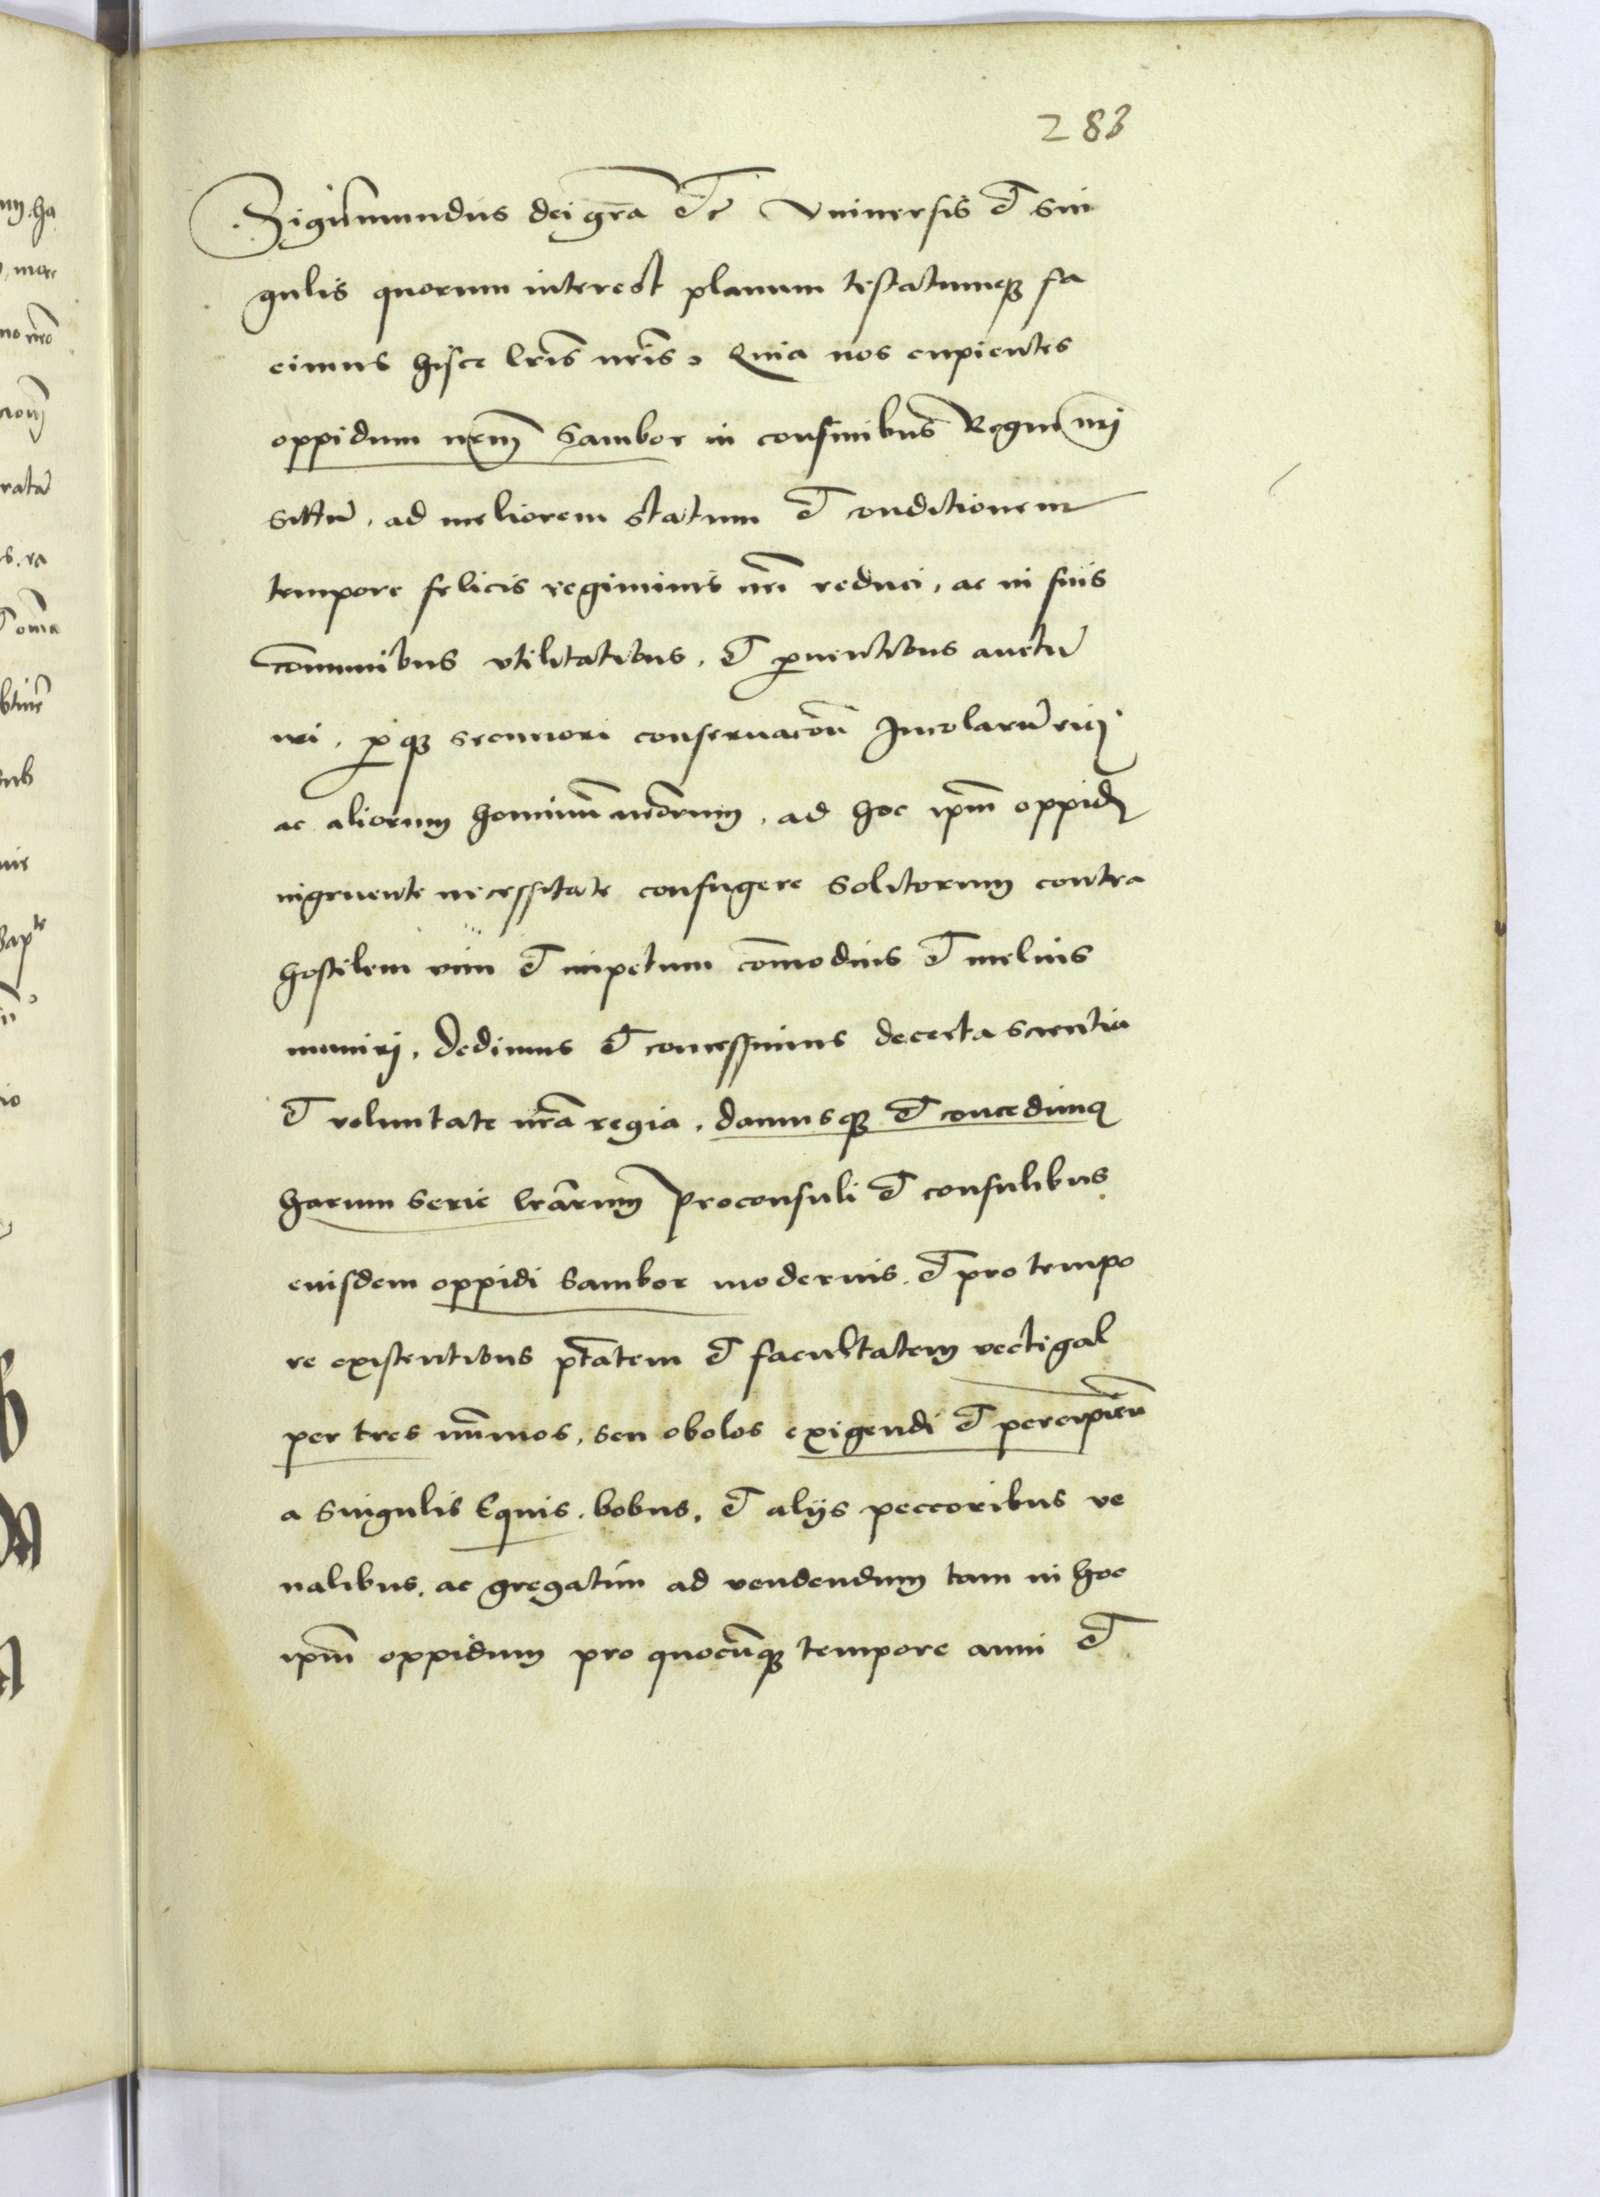 283
Sigismundus dei gr̃a etc Vniuersis et sin
gulis quorum interest planum testatumq3 fa
cimus hisce lr̃is nr̃is, Quia nos cupientes
oppidum nr̃m Sambor in confinibus Regni nr̃i
sittũ, ad meliorem statum et conditionem
tempore felicis regiminis nr̃i reduci, ac in suis
cõmunibus vtilitatibus, et prouentibus
ac aliorum hominũ nr̃orum, ad hoc ip̃m oppid
ingruente necessitate confugere solitorum contra
hostilem vim et impetum cõmodius et melius
muniri, Dedimus et concessimus de certa scientia
et voluntate nr̃a regia, damusq3 et concedimus
harum serie lr̃arum Proconsuli et consulibus
eiusdem oppidi Sambor modernis, et pro tempo
re existentibus p̃tatem et facultatem vectigal
per tres nũmos, seu obolos exigendi et percipien
a singulis Equis, bobus, et alijs peccoribus ve
nalibus, ac gregatim ad vendendum tam in hoc
ip̃m oppidum pro quocũq3 tempore anni et